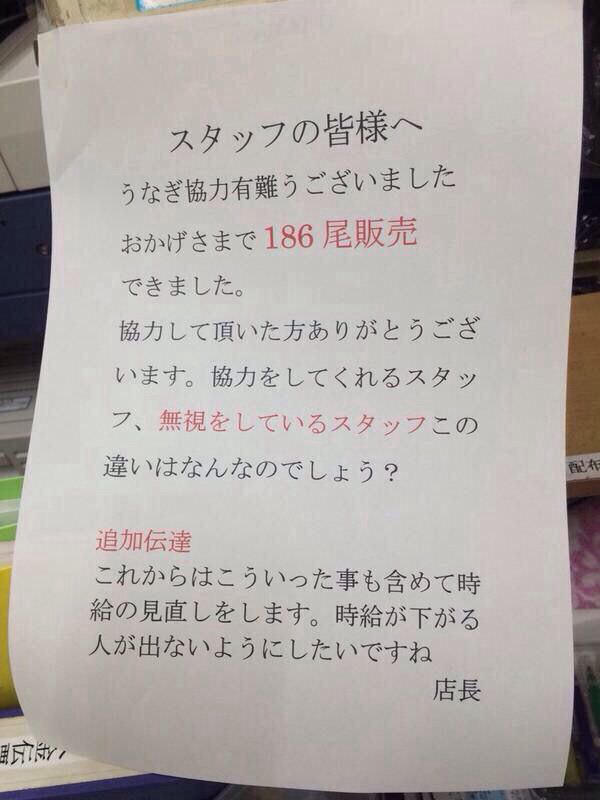 スタッフの皆様へ
うなぎ協力有難うございました
おかげさまで 186 尾販売
できました。
協力して頂いた方ありがとうござ
います。協力をしてくれるスタッ
フ、無視をしているスタッフこの
違いはなんなのでしょう？
追加伝達
これからはこういった事も含めて時
給の見直しをします。時給が下がる
人が出ないようにしたいですね
店長
配布